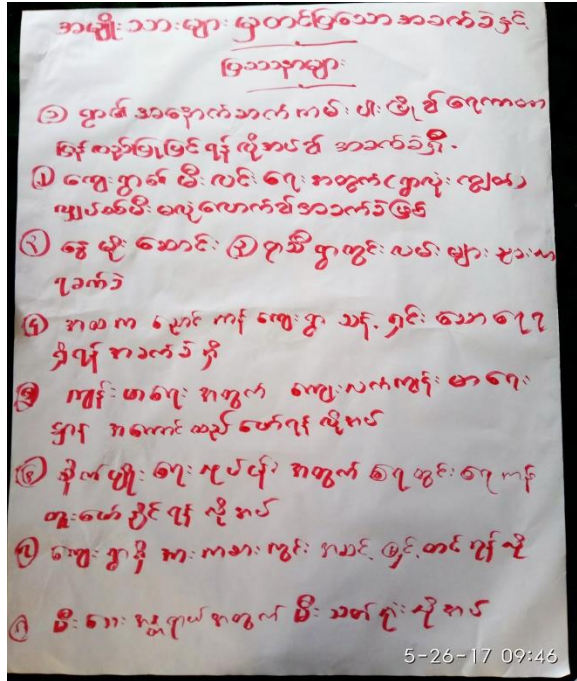 အမျိုးသားများ မှတင်ပြသော အခက်ခဲနှင့်
ပြဿနာများ
၁ ရွာ၏ အနောက်ဘက် ကမ်းပါးပြို၍ ရေကာတာ
ပြန်လည်ပြုပြင်ရန် လိုအပ်၍ အခက်ခဲရှိ.
၂ ကျေးရွာ၏ မီးလင်းရေး အတွက် (ရွာလုံးကျွတ်)
လျှပ်စစ်မီး မလုံလောက်၍ အခက်ခဲဖြစ်
၃ နွေ မိုး ဆောင်း ၃ ရာသီ ရွာတွင်း လမ်းများ သွားလာ
ရခက်ခဲ
၄ အထက ညောင်ကန် ကျေးရွာ သန့်ရှင်းသော ရေရ
ရှိရန် အခက်ခဲရှိ
၅ ကျန်းမာရေး အတွက် ကျေးလက်ကျန်းမာရေး
ဌာန အကောင်ထည်ဖော်ရန် လိုအပ်
၆ စိုက်ပျိုးရေးလုပ်ငန်း အတွက် ရေတွင်းရေကန်
တူးဖော်နိုင်ရန် လိုအပ်
၇ ကျေးရွာရှိ အားကစားကွင်း အဆင့်မြှင့်တင်ရန်လို
၈ မီးဘေးအန္တရာယ်အတွက် မီးသတ်ရုံးလိုအပ်
5-26-17 09:46